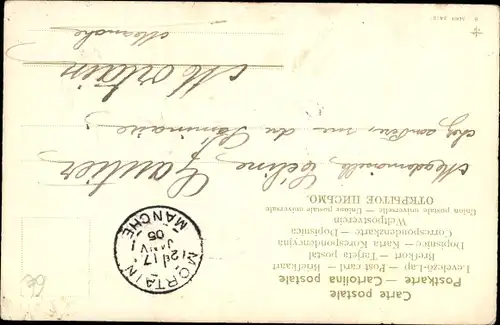 Carte postale
Postkarte — Cartolina postale
Levelezö-Lap — Post card — Briefkaart
Brefkort — Tarjeta postal
Dopisnice — Karta Korespondencyjna
Correspondenzkarte — Dopisnica
Weltpostverein
Union postale universelle — Unione postale universale
ОТКРЫТОЕ ПИСЬМО.
MORTAIN
2e 17
JANV
05
MANCHE
Mademoiselle Céline Gautier
rue du Séminaire
Mortain
Manche